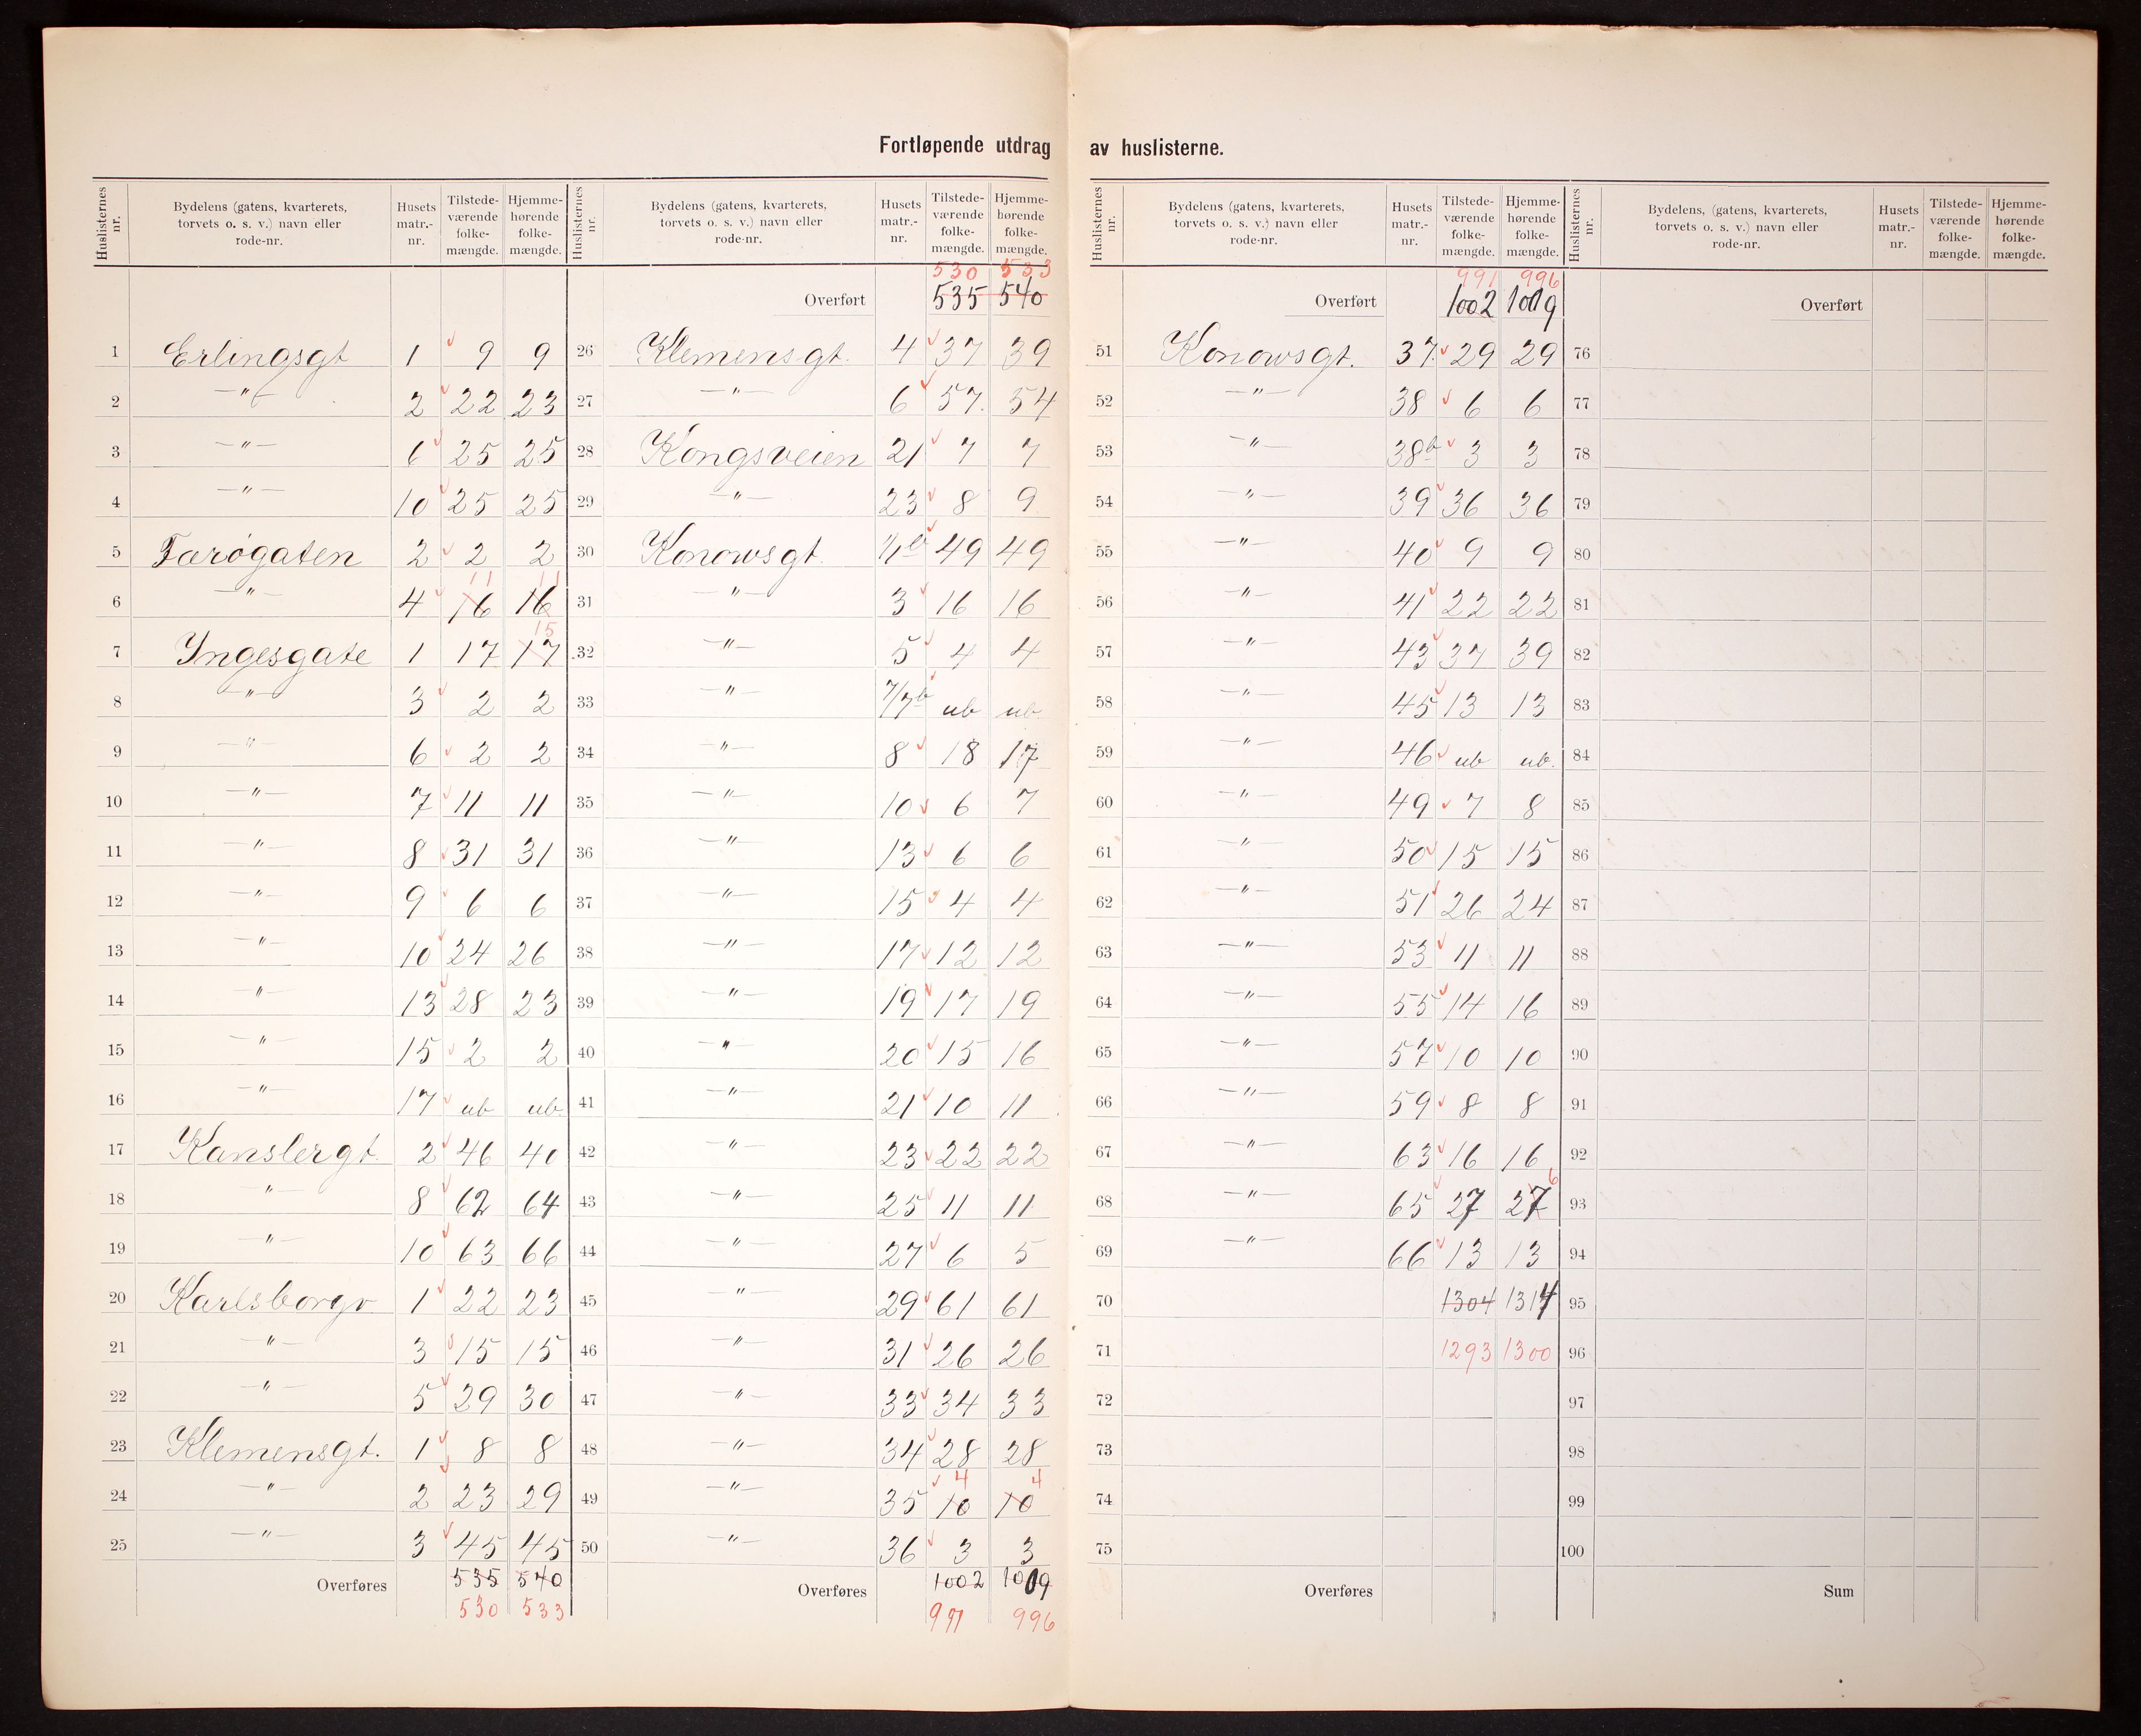 Fortløpende utdrag av huslisterne.
Huslisternes nr. | Bydelens (gatens, kvarterets, torvets o. s. v.) navn eller rode-nr. | Husets matr.-nr. | Tilstede-værende folke-mængde. | Hjemme-hørende folke-mængde.
1 Erlingsgt 1 9 9
2 —"— 2 22 23
3 —"— 6 25 25
4 —"— 10 25 25
5 Færøgaten 2 2 2
11 11
6 —"— 4 16 16
15
7 Yngesgate 1 17 17
8 —"— 3 2 2
9 —"— 6 2 2
10 —"— 7 11 11
11 —"— 8 31 31
12 —"— 9 6 6
13 —"— 10 24 26
14 —"— 13 28 23
15 —"— 15 2 2
16 —"— 17 ub ub
17 Kanslergt. 2 46 40
18 —"— 8 62 64
19 —"— 10 63 66
20 Karlsborgv 1 22 23
21 —"— 3 15 15
22 —"— 5 29 30
23 Klemensgt. 1 8 8
24 —"— 2 23 29
25 —"— 3 45 45
Overføres 535 540
530 533
Huslisternes nr. | Bydelens (gatens, kvarterets, torvets o. s. v.) navn eller rode-nr. | Husets matr.-nr. | Tilstede-værende folke-mængde. | Hjemme-hørende folke-mængde.
530 533
Overført 535 540
26 Klemensgt. 4 37 39
27 —"— 6 57. 54
28 Kongsveien 21 7 7
29 —"— 23 8 9
30 Konowsgt. 1/1b 49 49
31 —"— 3 16 16
32 —"— 5 4 4
33 —"— 7/7b ub ub
34 —"— 8 18 17
35 —"— 10 6 7
36 —"— 13 6 6
37 —"— 15 4 4
38 —"— 17 12 12
39 —"— 19 17 19
40 —"— 20 15 16
41 —"— 21 10 11
42 —"— 23 22 22
43 —"— 25 11 11
44 —"— 27 6 5
45 —"— 29 61 61
46 —"— 31 26 26
47 —"— 33 34 33
48 —"— 34 28 28
4 4
49 —"— 35 10 10
50 —"— 36 3 3
Overføres 1002 1009
991 996
Huslisternes nr. | Bydelens (gatens, kvarterets, torvets o. s. v.) navn eller rode-nr. | Husets matr.-nr. | Tilstede-værende folke-mængde. | Hjemme-hørende folke-mængde.
991 996
Overført 1002 1009
51 Konowsgt. 37 29 29
52 —"— 38 6 6
53 —"— 38b 3 3
54 —"— 39 36 36
55 —"— 40 9 9
56 —"— 41 22 22
57 —"— 43 37 39
58 —"— 45 13 13
59 —"— 46 ub ub.
60 —"— 49 7 8
61 —"— 50 15 15
62 —"— 51 26 24
63 —"— 53 11 11
64 —"— 55 14 16
65 —"— 57 10 10
66 —"— 59 8 8
67 —"— 63 16 16
6
68 —"— 65 27 27
69 —"— 66 13 13
70 1304 1314
71 1293 1300
72
73
74
75
Overføres
Huslisternes nr. | Bydelens, (gatens, kvarterets, torvets o. s. v.) navn eller rode-nr. | Husets matr.-nr. | Tilstede-værende folke-mængde. | Hjemme-hørende folke-mængde.
Overført
76
77
78
79
80
81
82
83
84
85
86
87
88
89
90
91
92
93
94
95
96
97
98
99
100
Sum